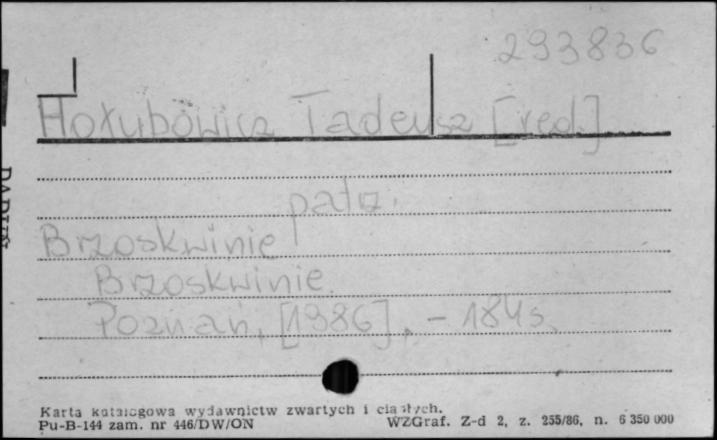 293836
Hołubowicz Tadeusz [red.]
patrz.
Brzoskwinie
Brzoskwinie.
Poznań, [1986], - 184 s.
Karta katalogowa wydawnictw zwartych i ciągłych.
Pu-B-144 zam. nr 446/DW/ON WZGraf. Z-d 2, z. 255/86, n. 6 350 000